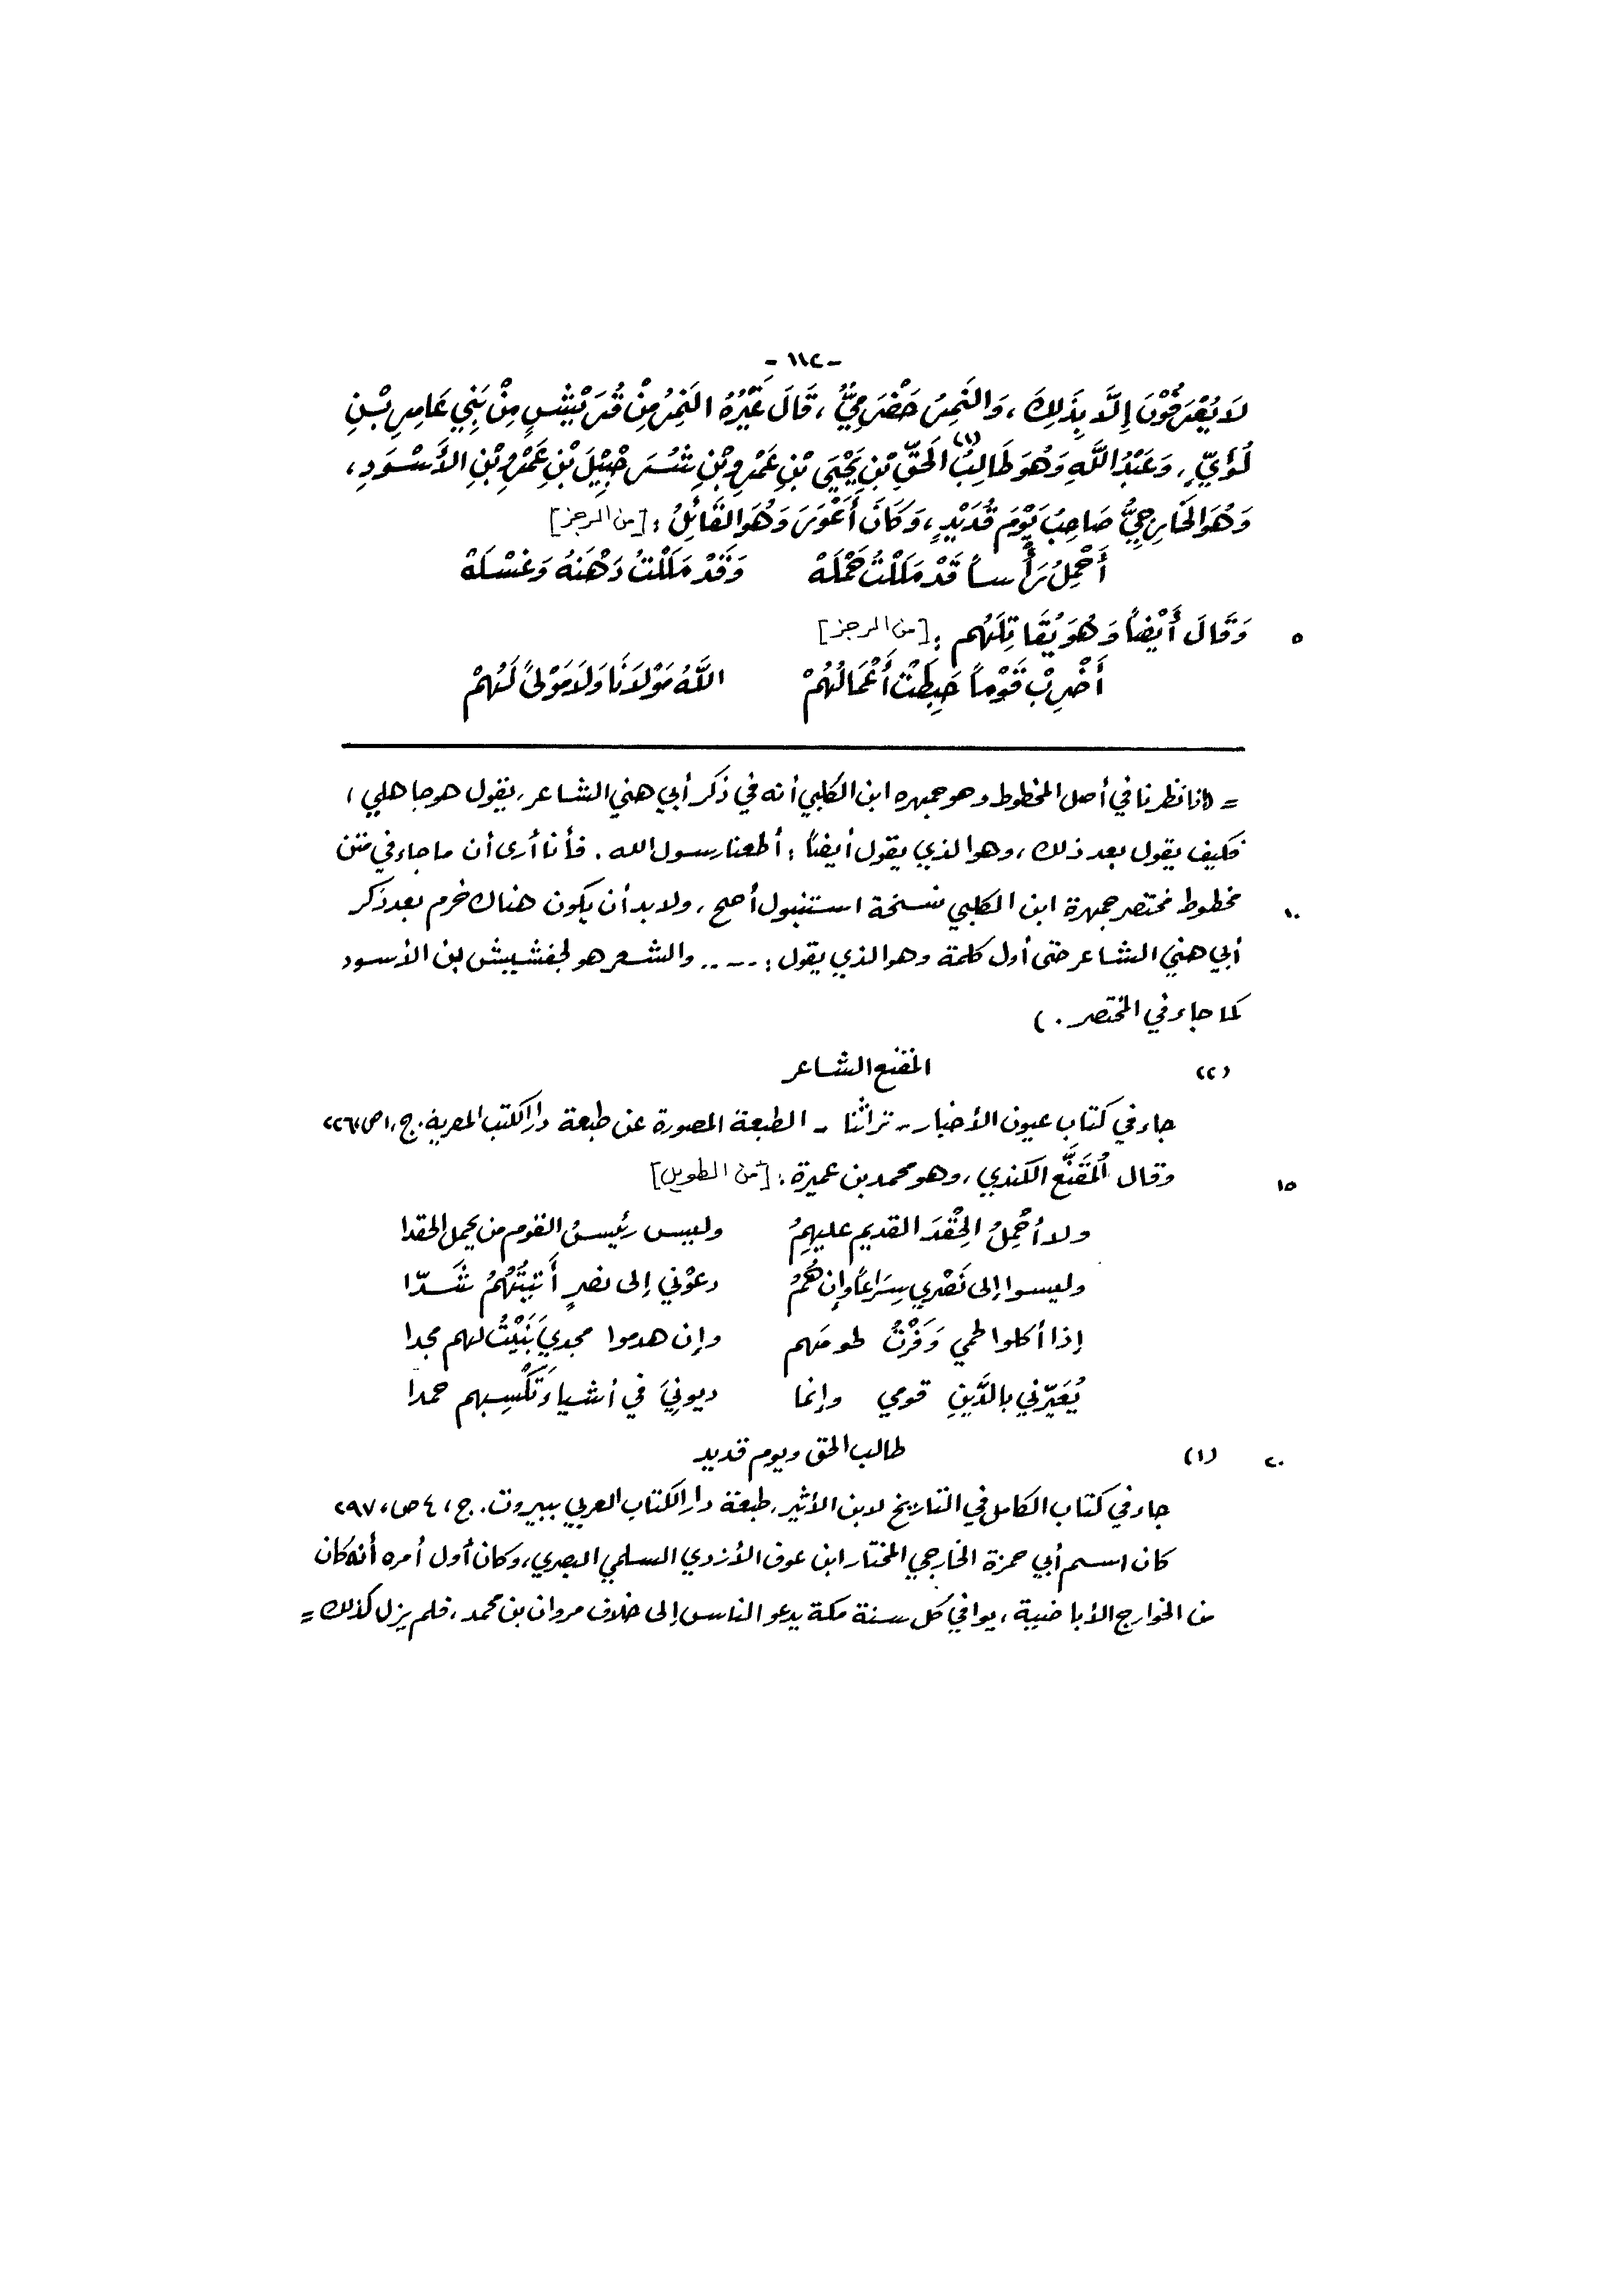 - ١١٢ -
لَا يُعْرَفُوْنَ إِلَّا بِذَلِكَ ، وَالنَّمِرُ حَضْرَمِيٌّ ، قَالَ غَيْرُهُ النَّمِرُ مِنْ قُرَيْشٍ مِنْ بَنِي عَامِرِ بْنِ
لُؤَيٍّ ، وَعَبْدُ اللَّهِ وَهُوَ طَالِبُ (١) الحَقِّ بْنِ يَحْيَى بْنِ عَمْرِو بْنِ شُرَحْبِيْلَ بْنِ عَمْرِو بْنِ الأَسْوَدِ ،
وَهُوَ الخَارِجِيُّ صَاحِبُ يَوْمَ قُدَيْدٍ ، وَكَانَ أَعْوَرَ وَهُوَ القَائِلُ : [من الرجز]
أَحْمِلُ رَأْساً قَدْ مَلِلْتُ حَمْلَهْ    وَقَدْ مَلِلْتُ دَهْنَهُ وَغَسْلَهْ
٥ وَقَالَ أَيْضاً وَهُوَ يُقَاتِلَهُم : [من الرجز]
أَضْرِبُ قَوْماً حَبِطَتْ أَعْمَالُهُمْ    اللَّهُ مَوْلَانَا وَلَا مَوْلىً لَهُمْ
= فإذا نظرنا في أصل المخطوط وهو جمهرة ابن الكلبي أنه في ذكر أبي هني الشاعر ، يقول هو جاهلي ،
فكيف يقول بعد ذلك ، وهو الذي يقول أيضاً : أطعنا رسول الله . فأنا أرى أن ما جاء في متن
١٠ مخطوط مختصر جمهرة ابن الكلبي نسخة استنبول أصح ، ولابد أن يكون هناك خرم بعد ذكر
أبي هني الشاعر حتى أول كلمة وهو الذي يقول : .... والشعر هو لجفشيش بن الأسود
كما جاء في المختصر . )
(٢) المقنع الشاعر
جاء في كتاب عيون الأخبار - تراثنا - الطبعة المصورة عن طبعة دار الكتب المصرية . ج ، ١ ص ، ٢٢٦
١٥ وقال المُقَنَّع الكندي ، وهو محمد بن عميرة : [من الطويل]
ولا أحْمِلُ الحِقْدَ القديم عليهِمُ    وليس رئيسُ القوم من يحمل الحقدا
وليسوا إلى نَصْري سِرَاعًا وإن هُمُ    دعوْني إلى نصرٍ أَتيتُهُمُ شَدّا
إذا أكلوا لحمي وَفَرْتُ لحومَهم    وإن هدموا مجديَ بَنَيْتُ لهم مجدا
يُعَيّرني بالدَّيْنِ قومي وإنما    ديونيَ في أشياءَ تَكْسِبهم حمدا
٢٠ (١) طالب الحق ويوم قديد
جاء في كتاب الكامل في التاريخ لابن الأثير ، طبعة دار الكتاب العربي ببيروت . ج ، ٤ ص ، ٢٩٧
كان اسم أبي حمزة الخارجي المختار ابن عوف الأزدي السلمي البصري ، وكان أول أمره أنه كان
من الخوارج الأباضيية ، يوافي كل سنة مكة يدعو الناس إلى خلاف مروان بن محمد ، فلم يزل كذلك =